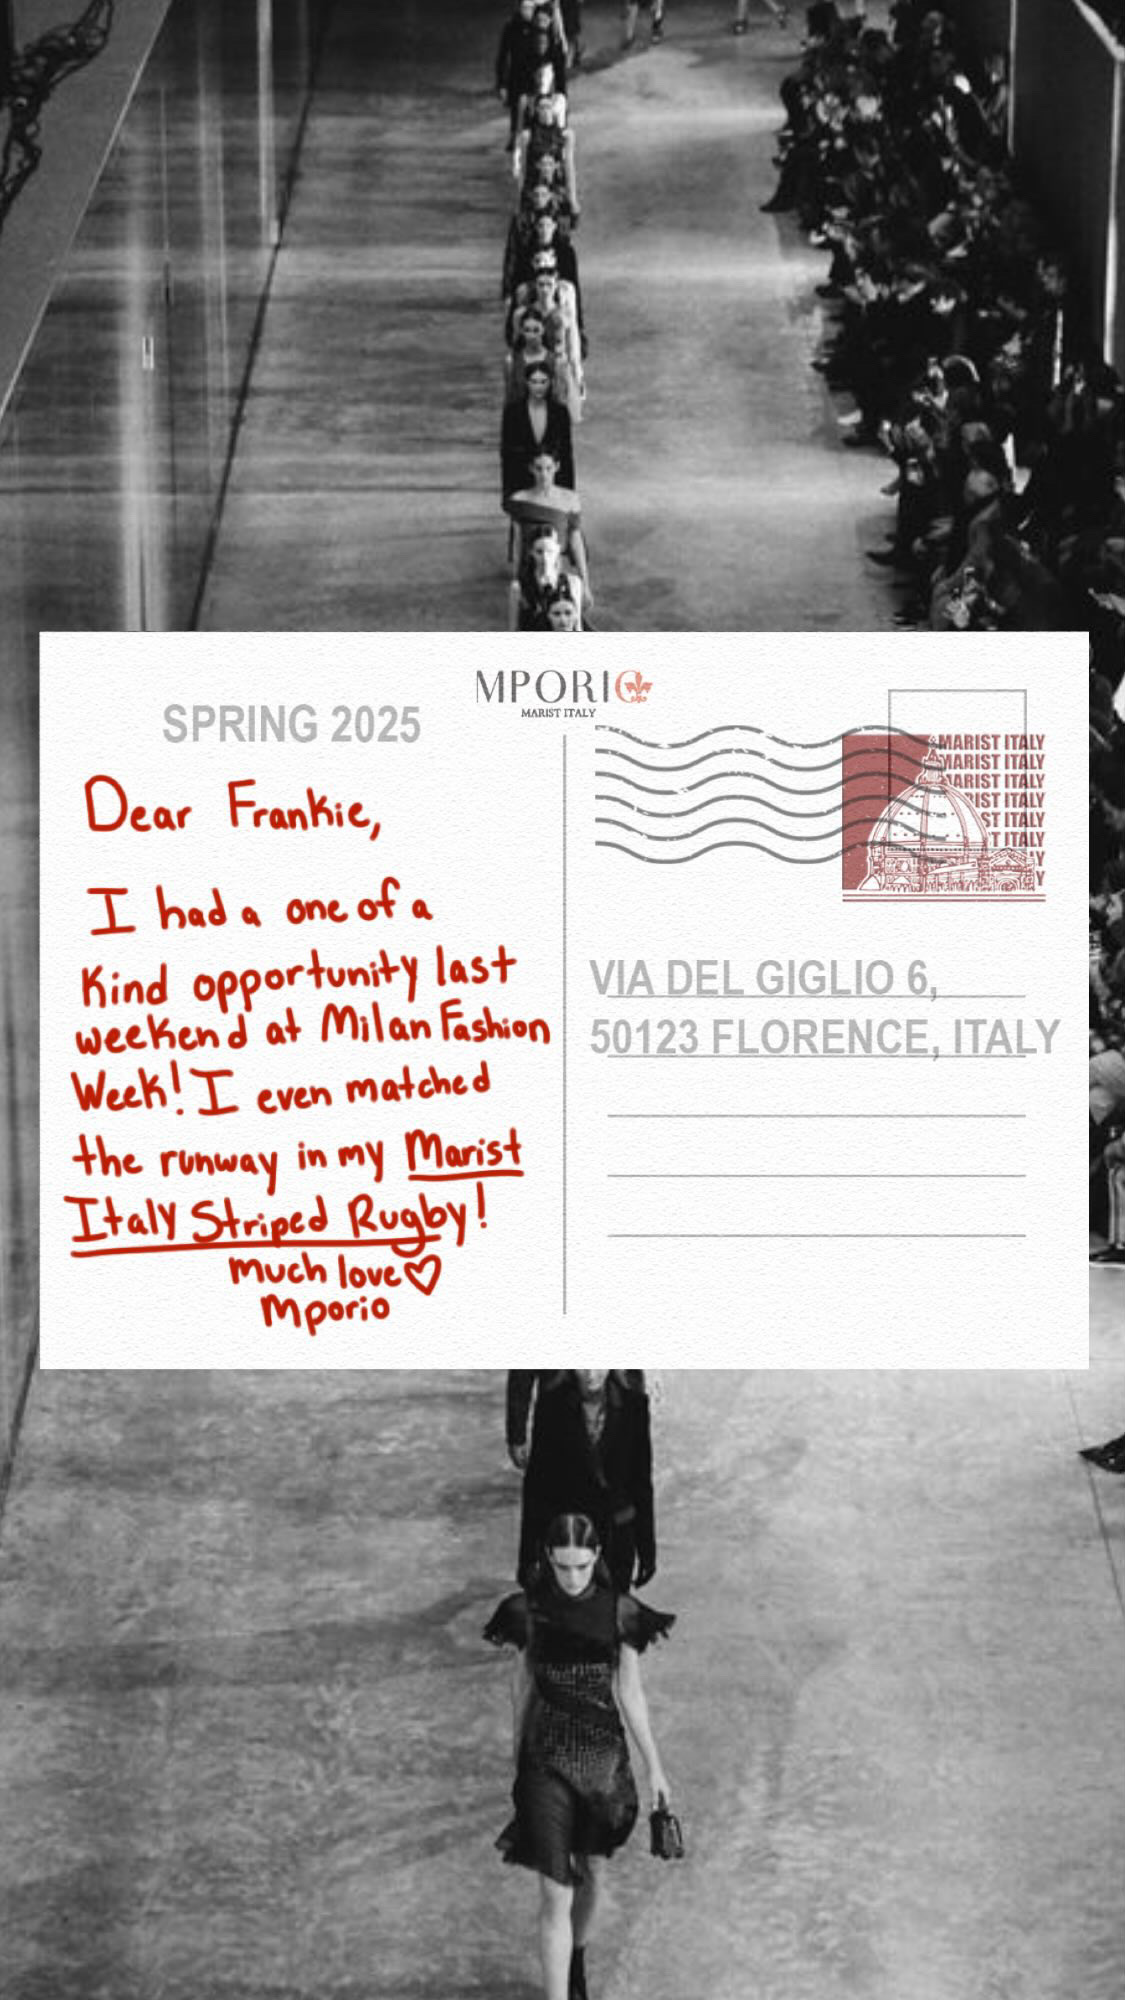 MPORIO
MARIST ITALY
SPRING 2025
Dear Frankie,
I had a one of a
Kind opportunity last
weekend at Milan Fashion
Week! I even matched
the runway in my Marist
Italy Striped Rugby!
much love♡
Mporio
MARIST ITALY
MARIST ITALY
ARIST ITALY
RIST ITALY
ST ITALY
T ITALY
Y
Y
VIA DEL GIGLIO 6,
50123 FLORENCE, ITALY